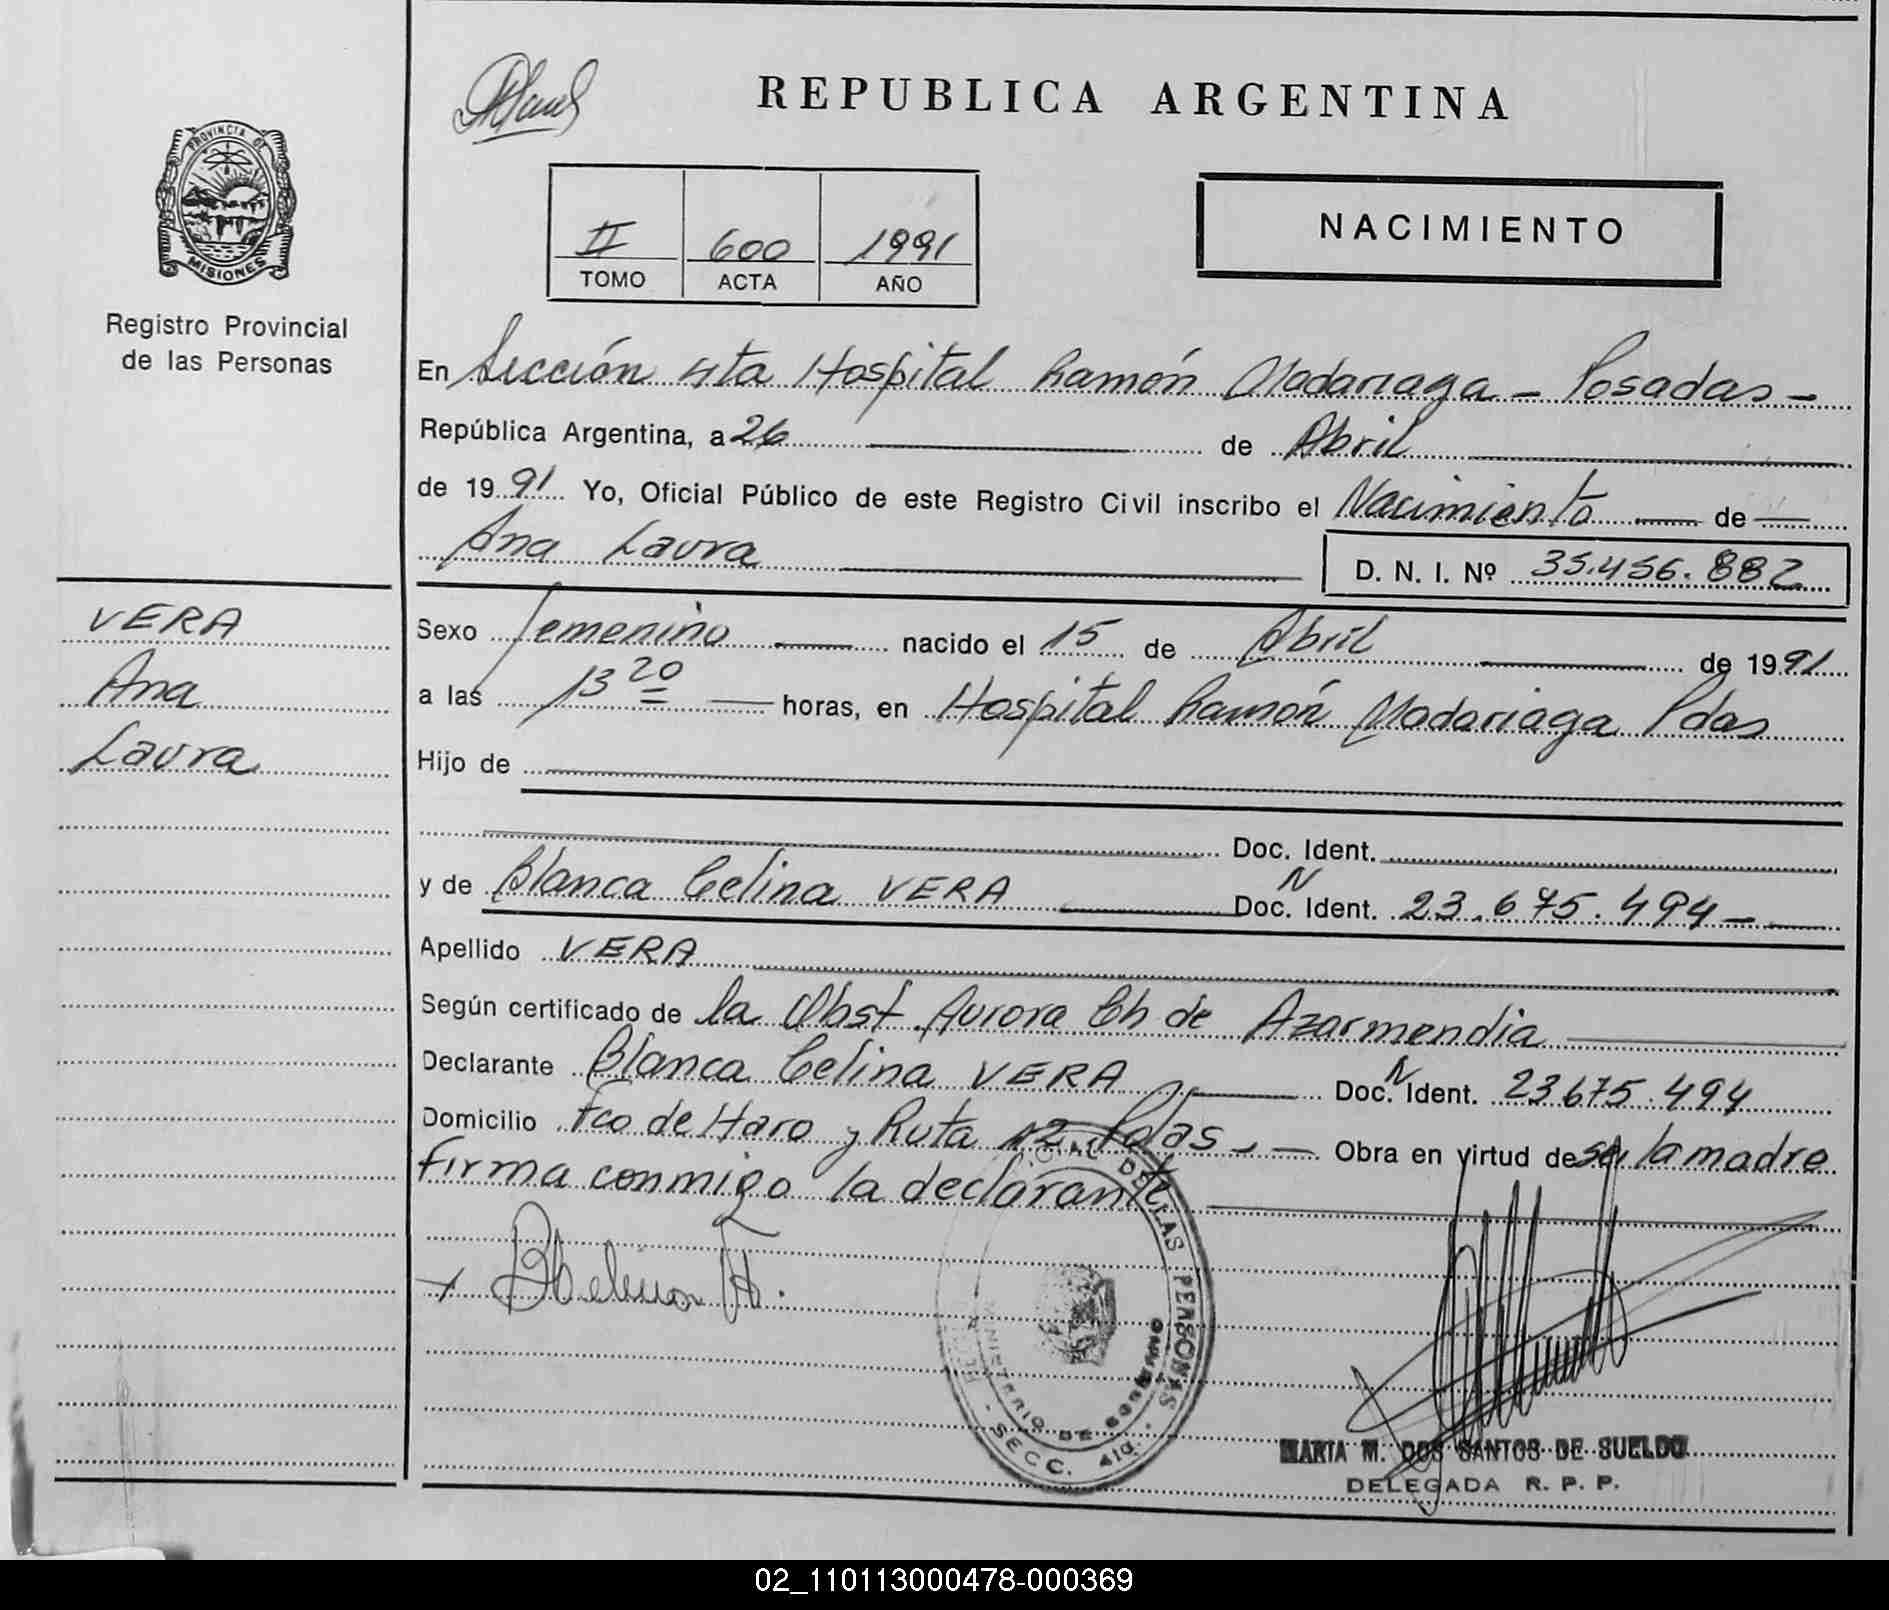 REPUBLICA ARGENTINA
PROVINCIA DE MISIONES
Registro Provincial
de las Personas
II 600 1991
TOMO ACTA AÑO
NACIMIENTO
En Sección 4ta Hospital Ramón Madariaga - Posadas -
República Argentina, a 26 de Abril
de 1991 Yo, Oficial Público de este Registro Civil inscribo el Nacimiento de
Ana Laura D. N. I. Nº 35.456.882
VERA
Ana
Laura
Sexo femenino nacido el 15 de Abril de 1991
a las 13 20 horas, en Hospital Ramón Madariaga Pdas
Hijo de
Doc. Ident.
y de Blanca Celina VERA Doc. N Ident. 23.675.494-
Apellido VERA
Según certificado de la Obst. Aurora Ch de Azarmendia
Declarante Blanca Celina VERA Doc. N Ident. 23675.494
Domicilio Fco de Haro y Ruta 12 Pdas - Obra en virtud de ser la madre
firma conmigo la declarante
DE LAS PERSONAS
MINISTERIO DE GOBIERNO
SECC. 4ta.
MARIA M. DOS SANTOS DE SUELDO
DELEGADA R. P. P.
02_110113000478-000369